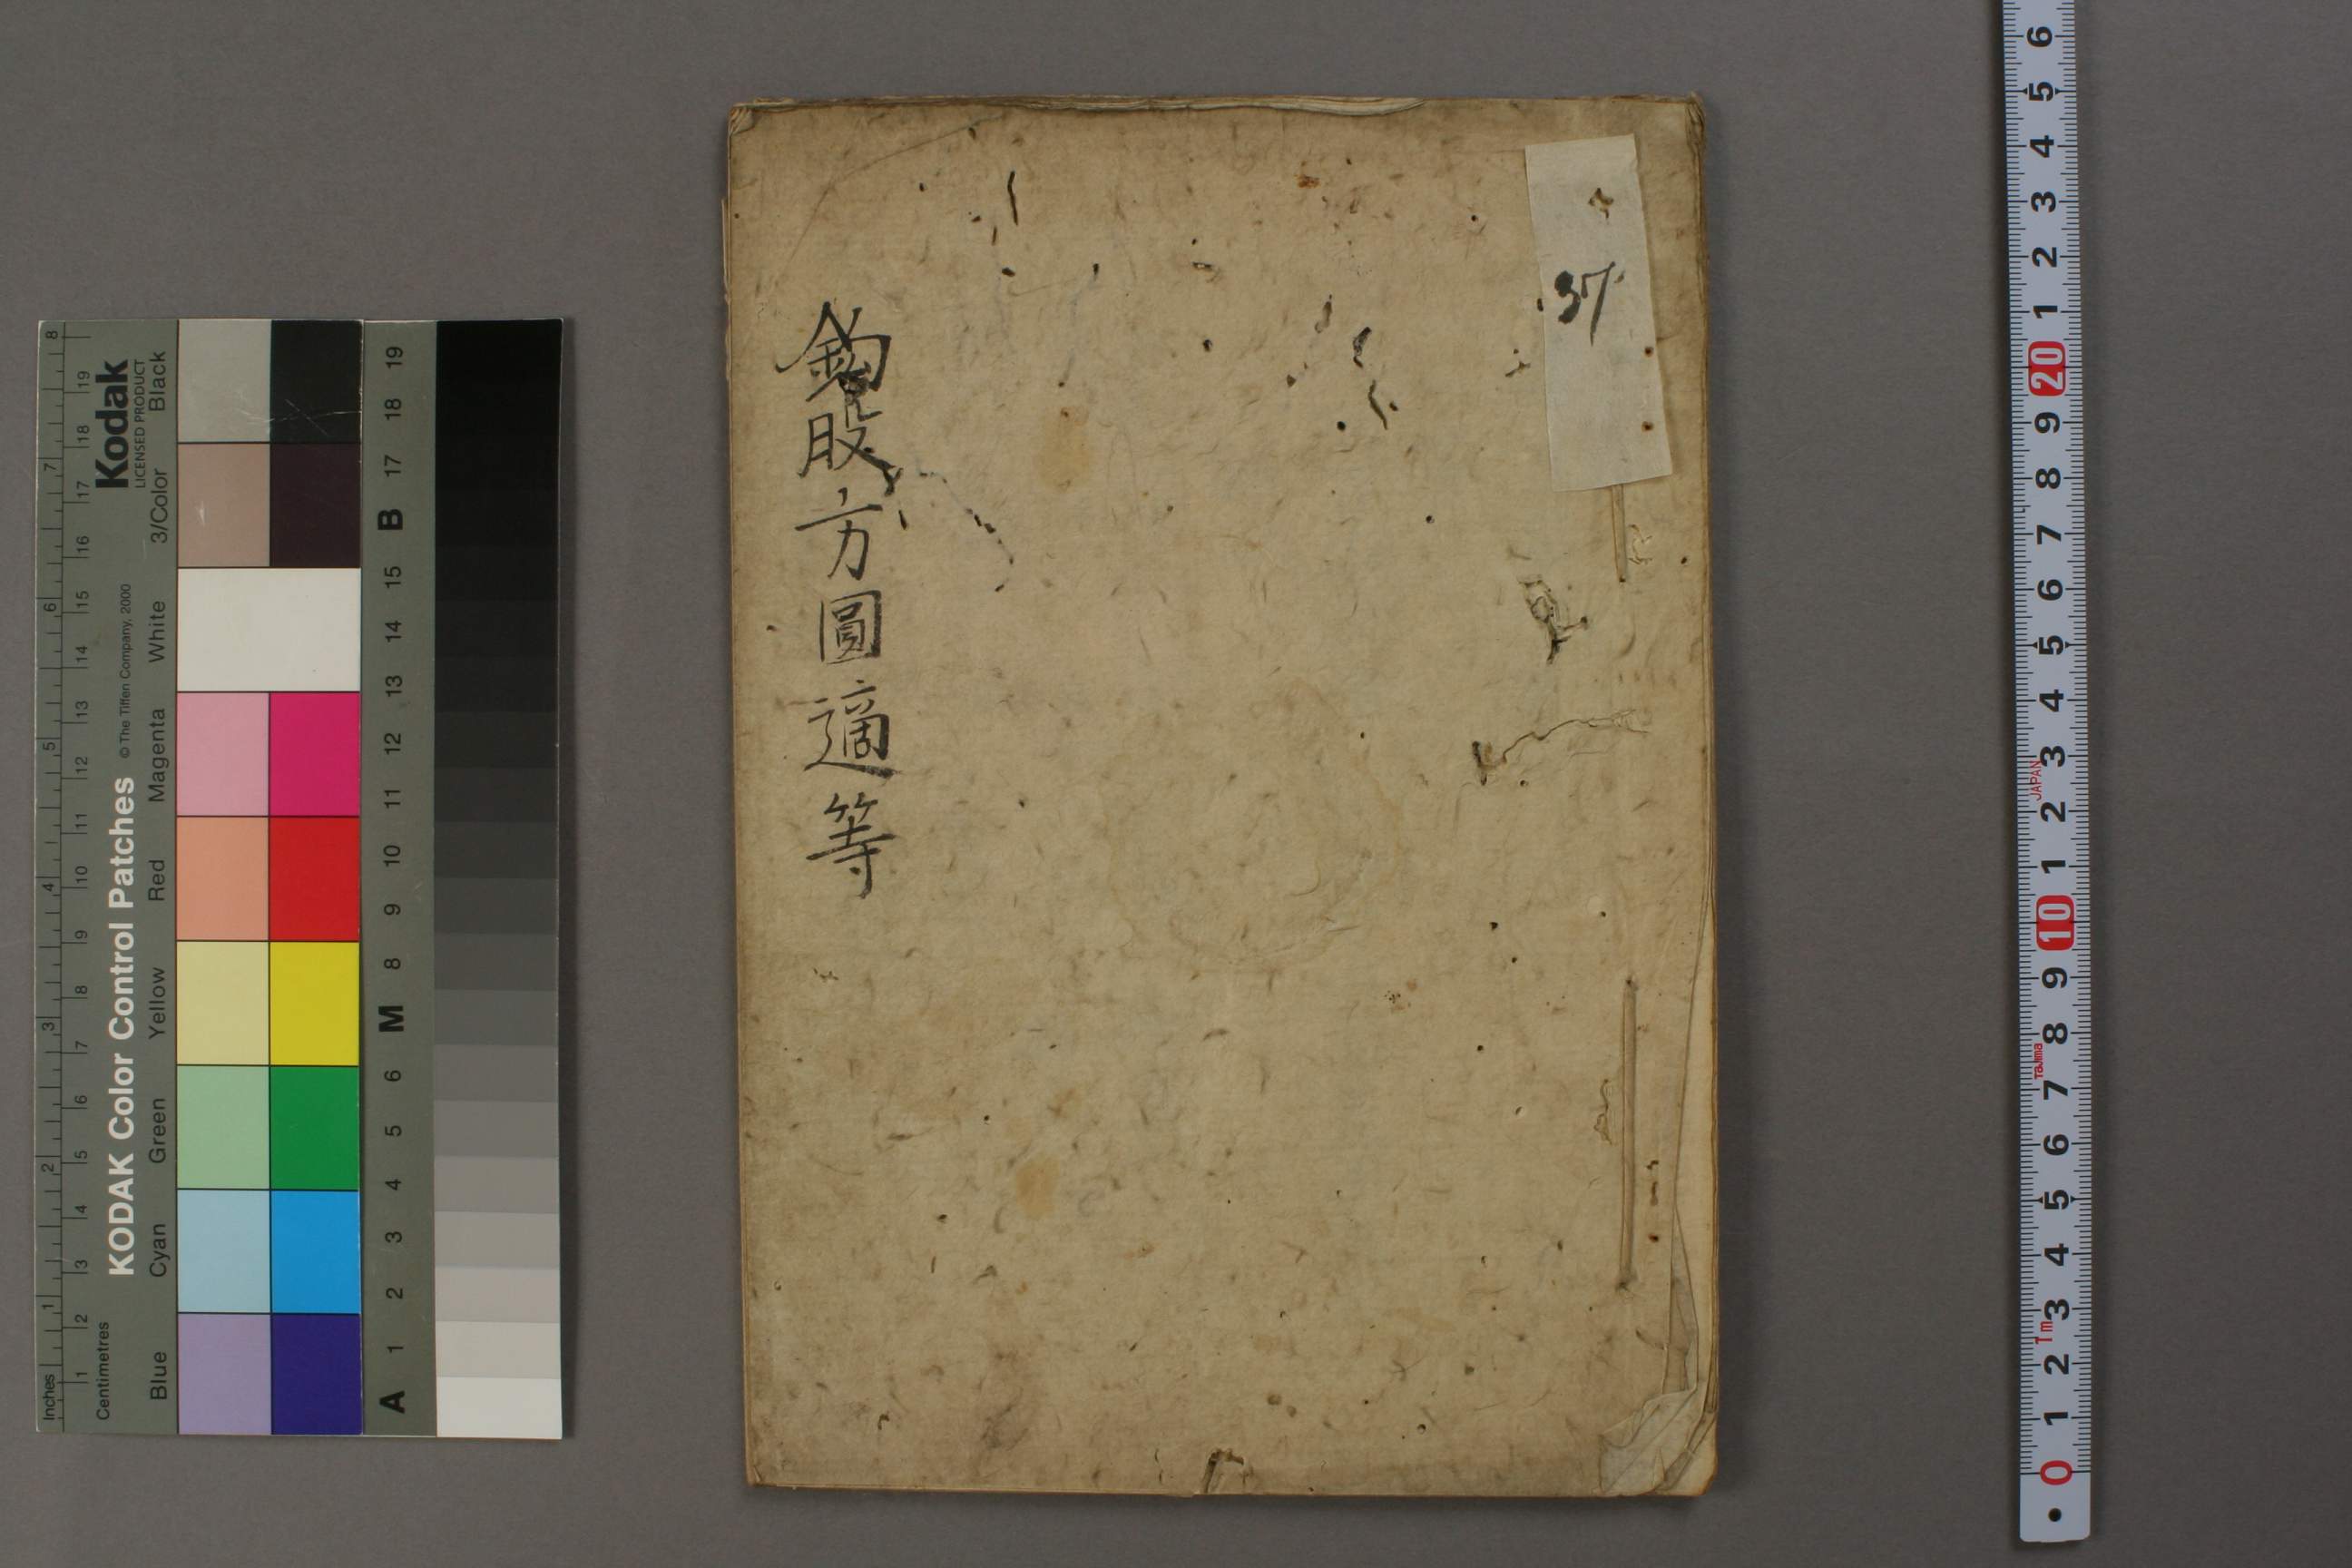 鈎股方圓適等
37
KODAK Color Control Patches
© The Tiffen Company, 2000
Kodak
LICENSED PRODUCT
Inches
1 2 3 4 5 6 7 8
Centimetres
1 2 3 4 5 6 7 8 9 10 11 12 13 14 15 16 17 18 19
Blue Cyan Green Yellow Red Magenta White 3/Color Black
A 1 2 3 4 5 6 M 8 9 10 11 12 13 14 15 B 17 18 19
0 1 2 3 4 5 6 7 8 9 10 1 2 3 4 5 6 7 8 9 20 1 2 3 4 5 6
1m
Tajima
JAPAN